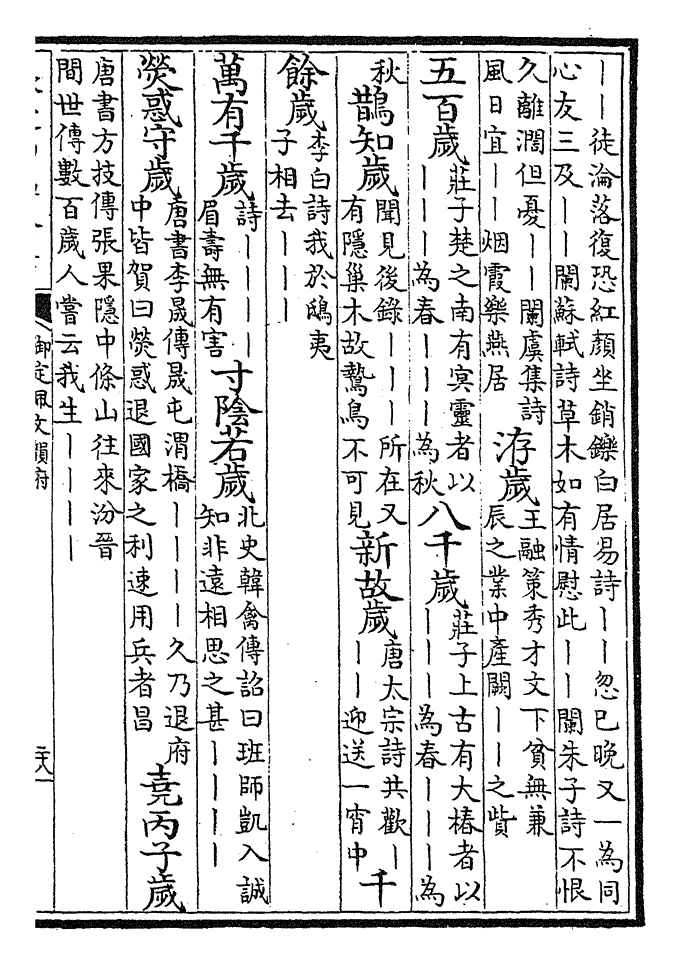 丨丨徒淪落復恐紅顏坐銷鑠白居易詩丨丨忽已晚又一為同
心友三及丨丨闌蘇軾詩草木如有情慰此丨丨闌朱子詩不恨
久離濶但憂丨丨闌虞集詩
風日宜丨丨烟霞樂燕居
洊歲
王融策秀才文下貧無兼
辰之業中產闕丨丨之貲
五百歲
莊子楚之南有冥靈者以
丨丨丨為春丨丨丨為秋
八千歲
莊子上古有大椿者以
丨丨丨為春丨丨丨為
秋
鵲知歲
聞見後錄丨丨丨所在又
有隱巢木故鷙鳥不可見
新故歲
唐太宗詩共歡丨
丨丨迎送一宵中
千
餘歲
李白詩我於鴟夷
子相去丨丨丨
萬有千歲
詩丨丨丨丨
眉壽無有害
寸陰若歲
北史韓禽傳詔曰班師凱入誠
知非遠相思之甚丨丨丨丨
熒惑守歲
唐書李晟傳晟屯渭橋丨丨丨丨久乃退府
中皆賀曰熒惑退國家之利速用兵者昌
堯丙子歲
唐書方技傳張果隱中條山往來汾晉
間世傳數百歲人嘗云我生丨丨丨丨
御定佩文韻府